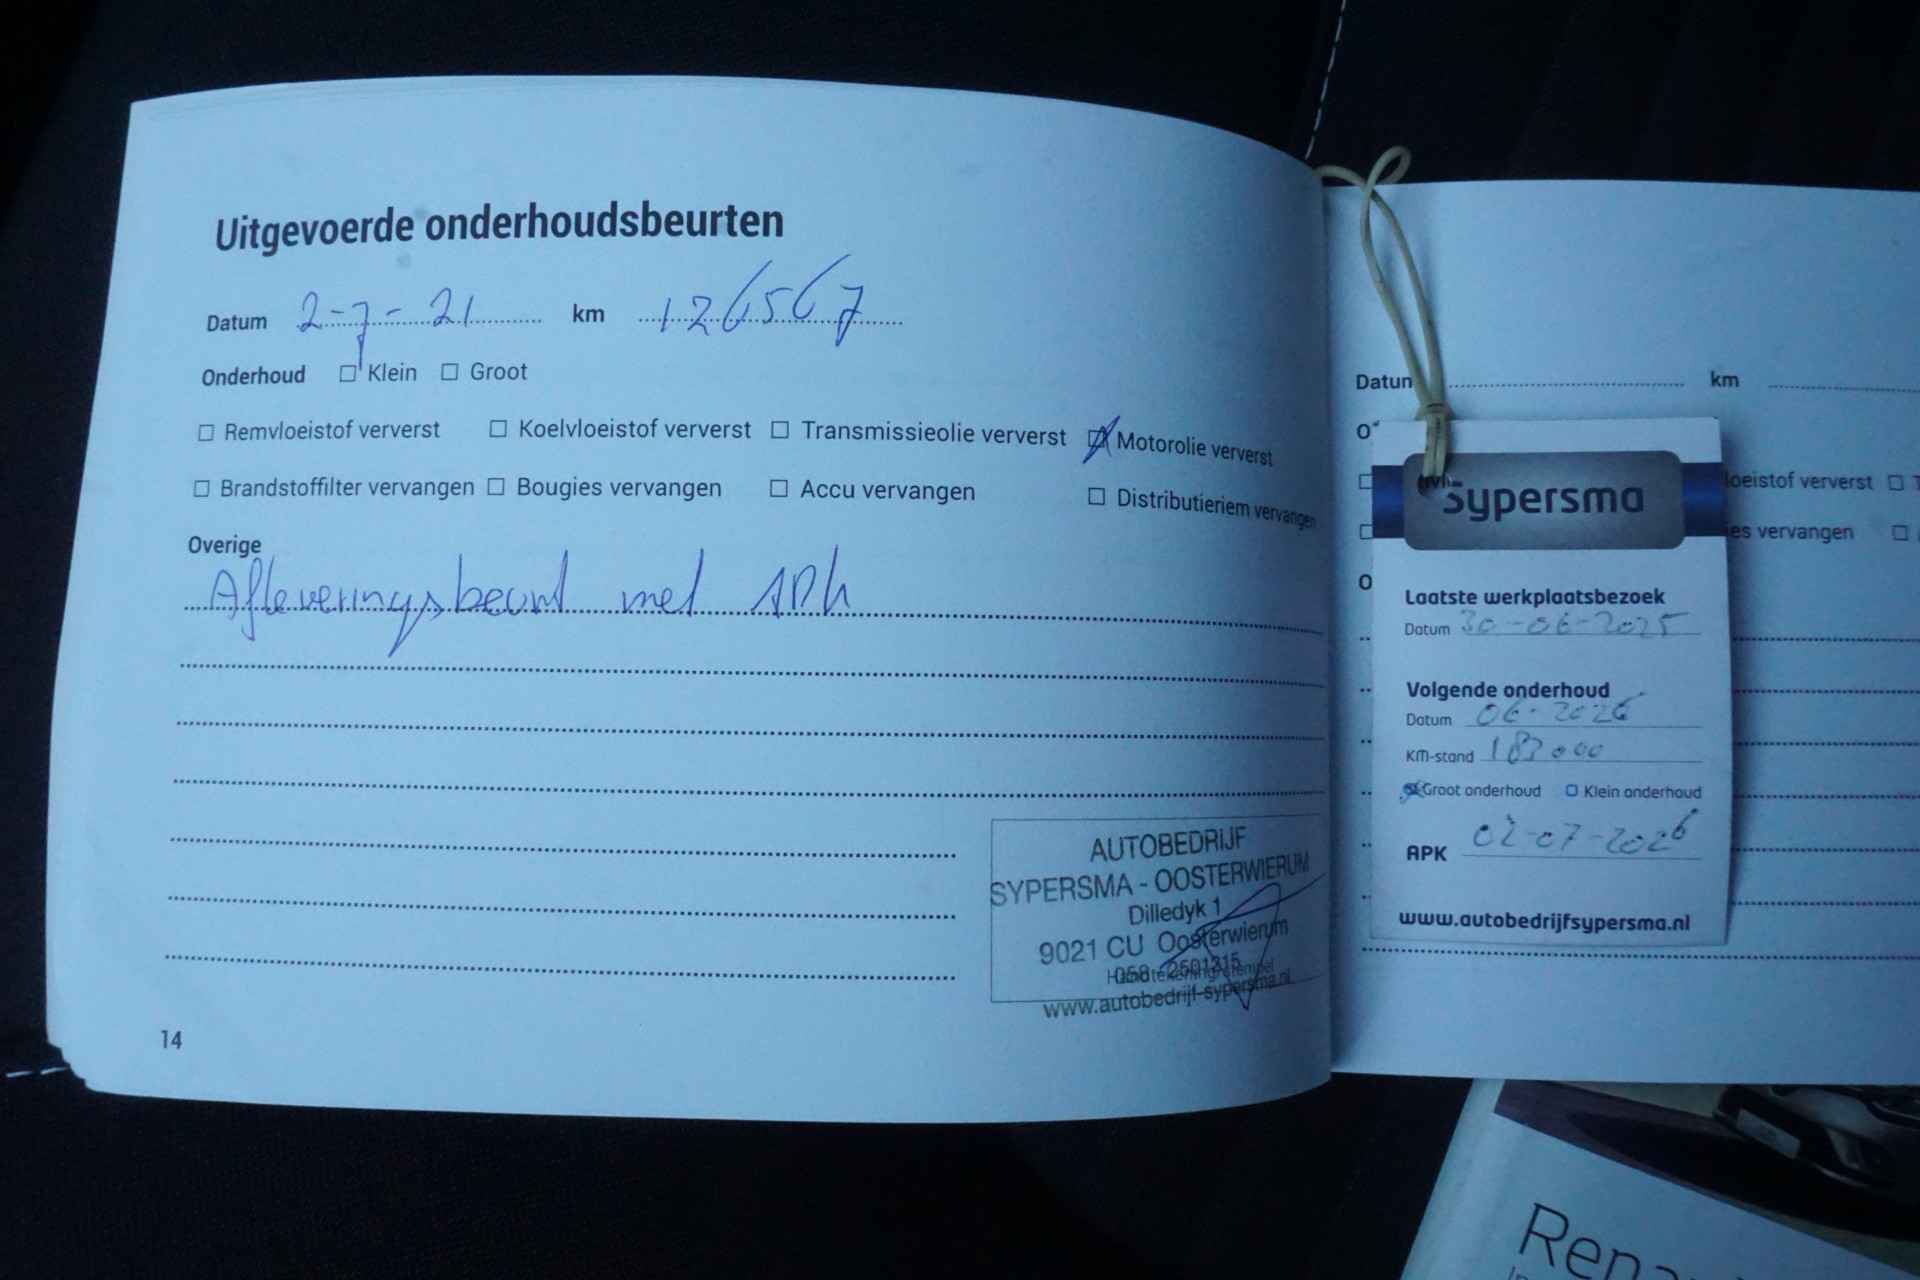 Uitgevoerde onderhoudsbeurten
Datum 2-7-21 km 126567
Onderhoud Klein Groot
Remvloeistof ververst Koelvloeistof ververst Transmissieolie ververst Motorolie ververst
Brandstoffilter vervangen Bougies vervangen Accu vervangen Distributieriem vervangen
Overige
Afleveringsbeurt met APK
AUTOBEDRIJF
SYPERSMA - OOSTERWIERUM
Dilledyk 1
9021 CU Oosterwierum
058 - 2501215
www.autobedrijf-sypersma.nl
14
Datum km
loeistof ververst
es vervangen
Sypersma
Laatste werkplaatsbezoek
Datum 30-06-2025
Volgende onderhoud
Datum 06-2026
KM-stand 183000
Groot onderhoud Klein onderhoud
APK 02-07-2026
www.autobedrijfsypersma.nl
Rena